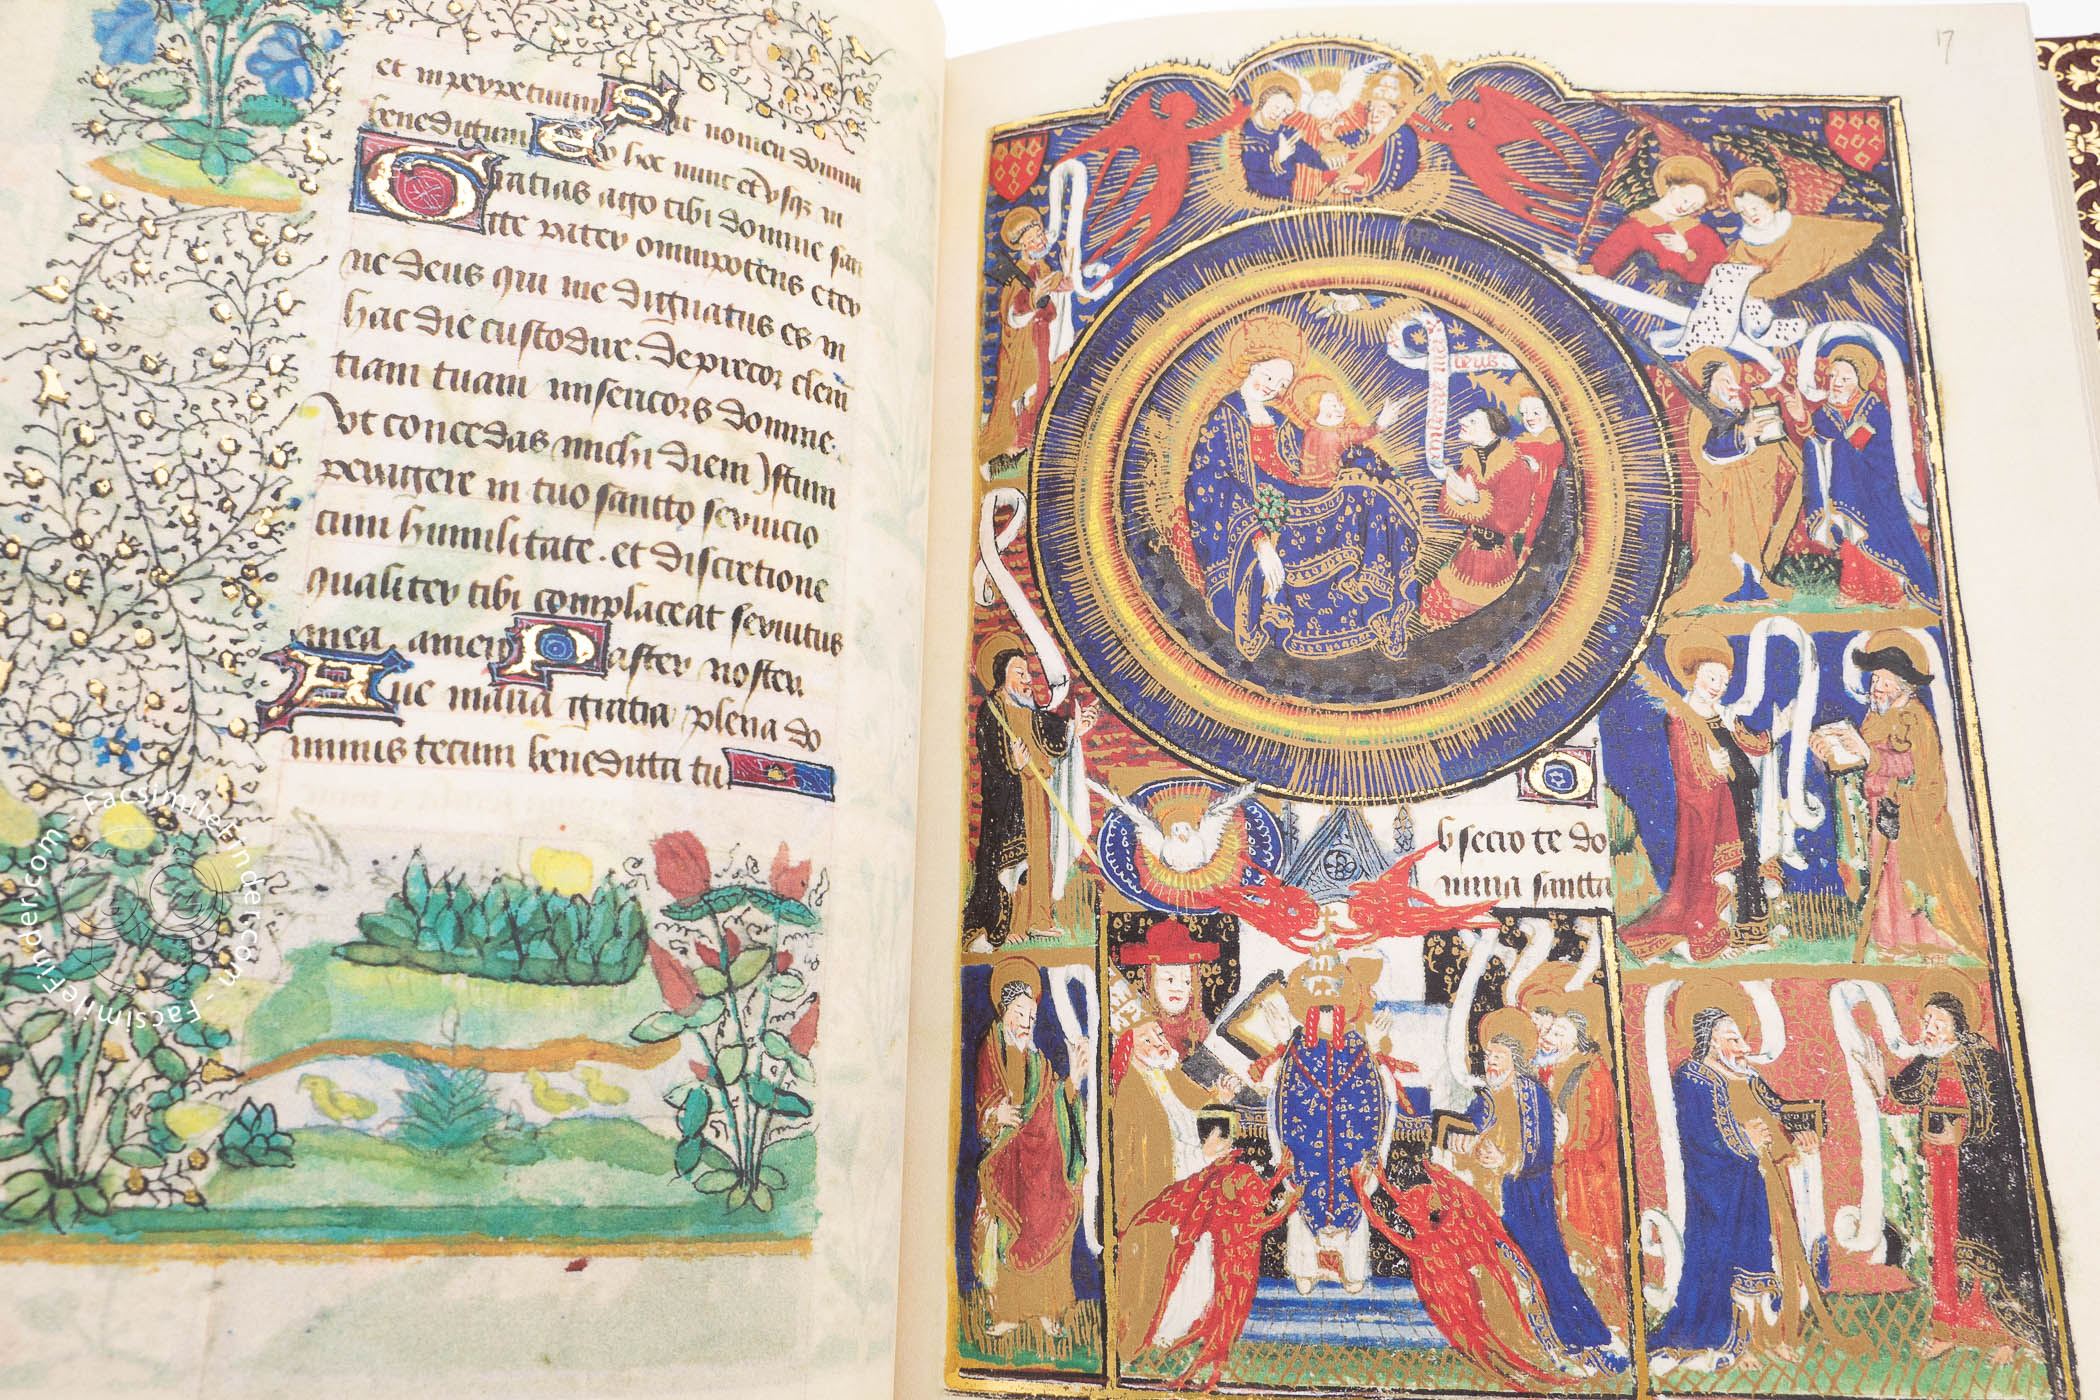 et in perpetuum Sit nomen domini
benedictum Ex hoc nunc et vsqz in
Gratias ago tibi domine san
cte pater omnipotens eter
ne deus qui me dignatus es in
hac die custodire. Deprecor clem
tiam tuam misericors domine.
Vt concedas michi diem Istum
peragere in tuo santto seruicio
cum humilitate. et discretione
qualiter tibi complaceat seruitus
mea. amen Paster noster
Aue maria gratia plena do
minus tecum beneditta tu
17
O
bsecro te do
mina santta
FacsimileFinder.com - FacsimileFinder.com -